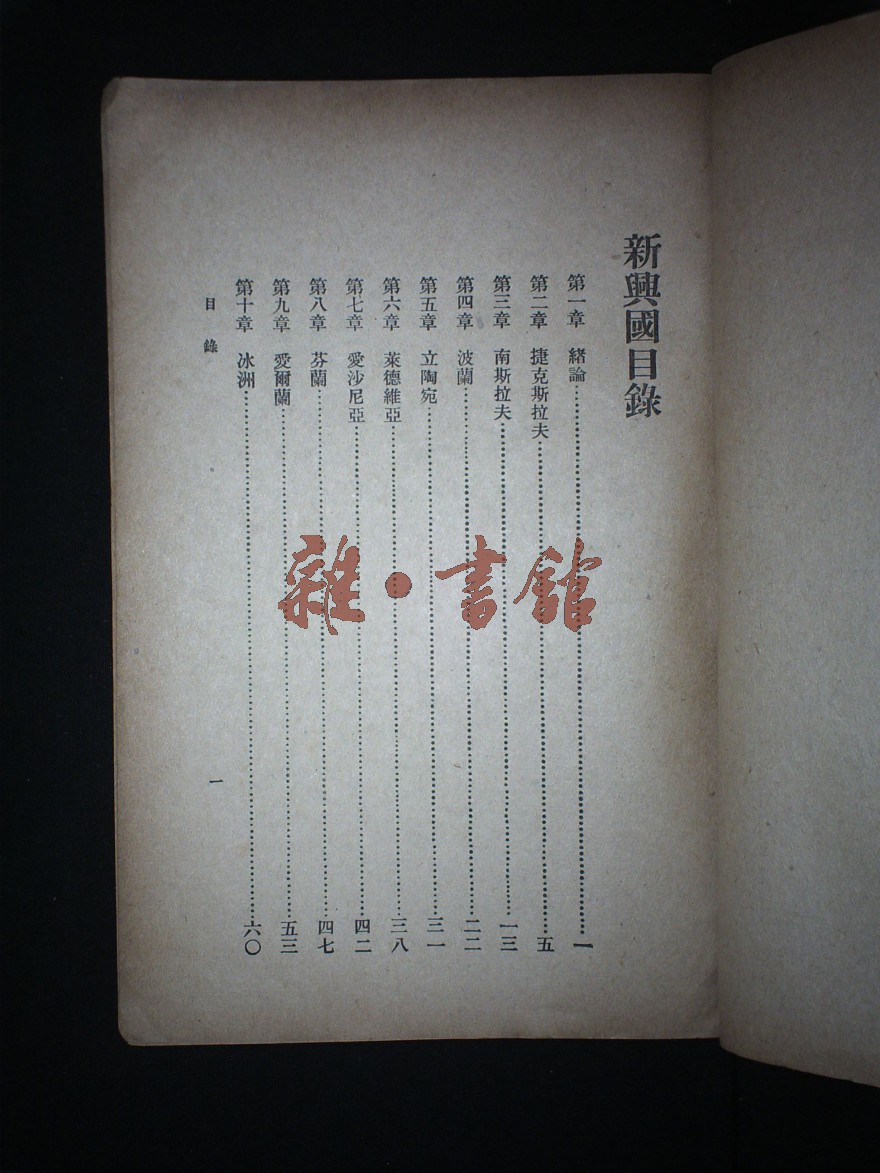 新興國目錄
第一章 緒論……一
第二章 捷克斯拉夫……五
第三章 南斯拉夫……一三
第四章 波蘭……二二
第五章 立陶宛……三一
第六章 萊德維亞……三八
第七章 愛沙尼亞……四二
第八章 芬蘭……四七
第九章 愛爾蘭……五三
第十章 冰洲……六〇
目錄
一
雜·書館